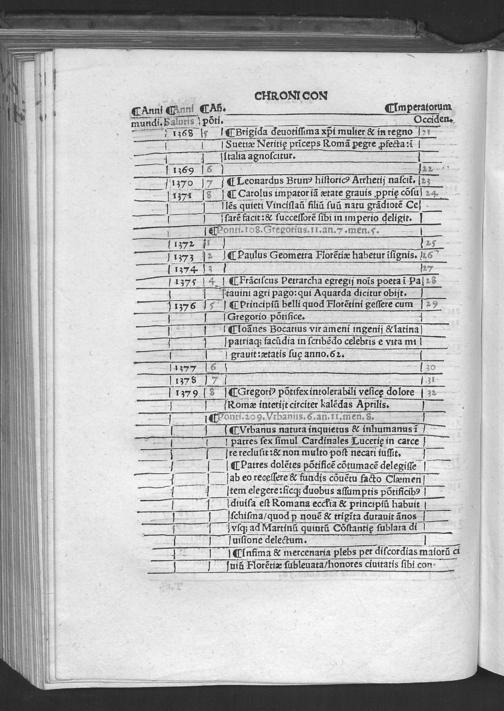 CHRONICON
¶Anni ¶Anni ¶Añ. ¶Imperatorum
mundi. Salutis põti. Occiden.
1368 5 ¶Brigida deuotissima xp̃i mulier & in regno 21
Suetiæ Neritię prĩceps Romã pegre ꝓfecta: ĩ
Italia agnoscitur.
1369 6 22
1370 7 ¶Leonardus Brunꝰ historicꝰ Arhetij nascit̃. 23
1371 8 ¶Carolus impator iã ætate grauis ꝓprię cõsu 24
lẽs quieti Vincislaũ filiũ suũ natu grãdiorẽ Cę
sarẽ facit: & successorẽ sibi in imperio deligit.
¶Ponti. 208. Gregorius. 11. an. 7. men. 5.
1372 1 25
1373 2 ¶Paulus Geometra Florẽtiæ habetur ĩsignis. 26
1374 3 27
1375 4 ¶Frãciscus Petrarcha egregij noĩs poeta ĩ Pa 28
tauini agri pago: qui Aquarda dicitur obijt.
1376 5 ¶Principiũ belli quod Florẽtini gessere cum 29
Gregorio põtifice.
¶Ioãnes Bocatius vir ameni ingenij & latina
patriaq; facũdia in scribẽdo celebris e vita mi
grauit: ætatis suę anno. 62.
1377 6 30
1378 7 31
1379 8 ¶Gregoriꝰ põtifex intolerabili vesicę dolore 32
Romæ interijt circiter kalẽdas Aprilis.
¶Ponti. 209. Vrbanus. 6. an. 11. men. 8.
¶Vrbanus natura inquietus & inhumanus ĩ
patres sex simul Cardinales Lucerię in carce
re reclusit: & non multo post necari iussit.
¶Patres dolẽtes põtificẽ cõtumacẽ delegisse
ab eo recessere & fundis cõuẽtu facto Clæmen
tem elegere: sicq; duobus assumptis põtificibꝰ
diuisa est Romana ecclĩa & principiũ habuit
schisma/quod p nouẽ & trigĩta durauit ãnos
vsq; ad Martinũ quintũ Cõstantię sublata di
uisione delectum.
¶Infima & mercenaria plebs per discordias maiorũ ci
uiũ Florẽtiæ subleuata/honores ciuitatis sibi con-